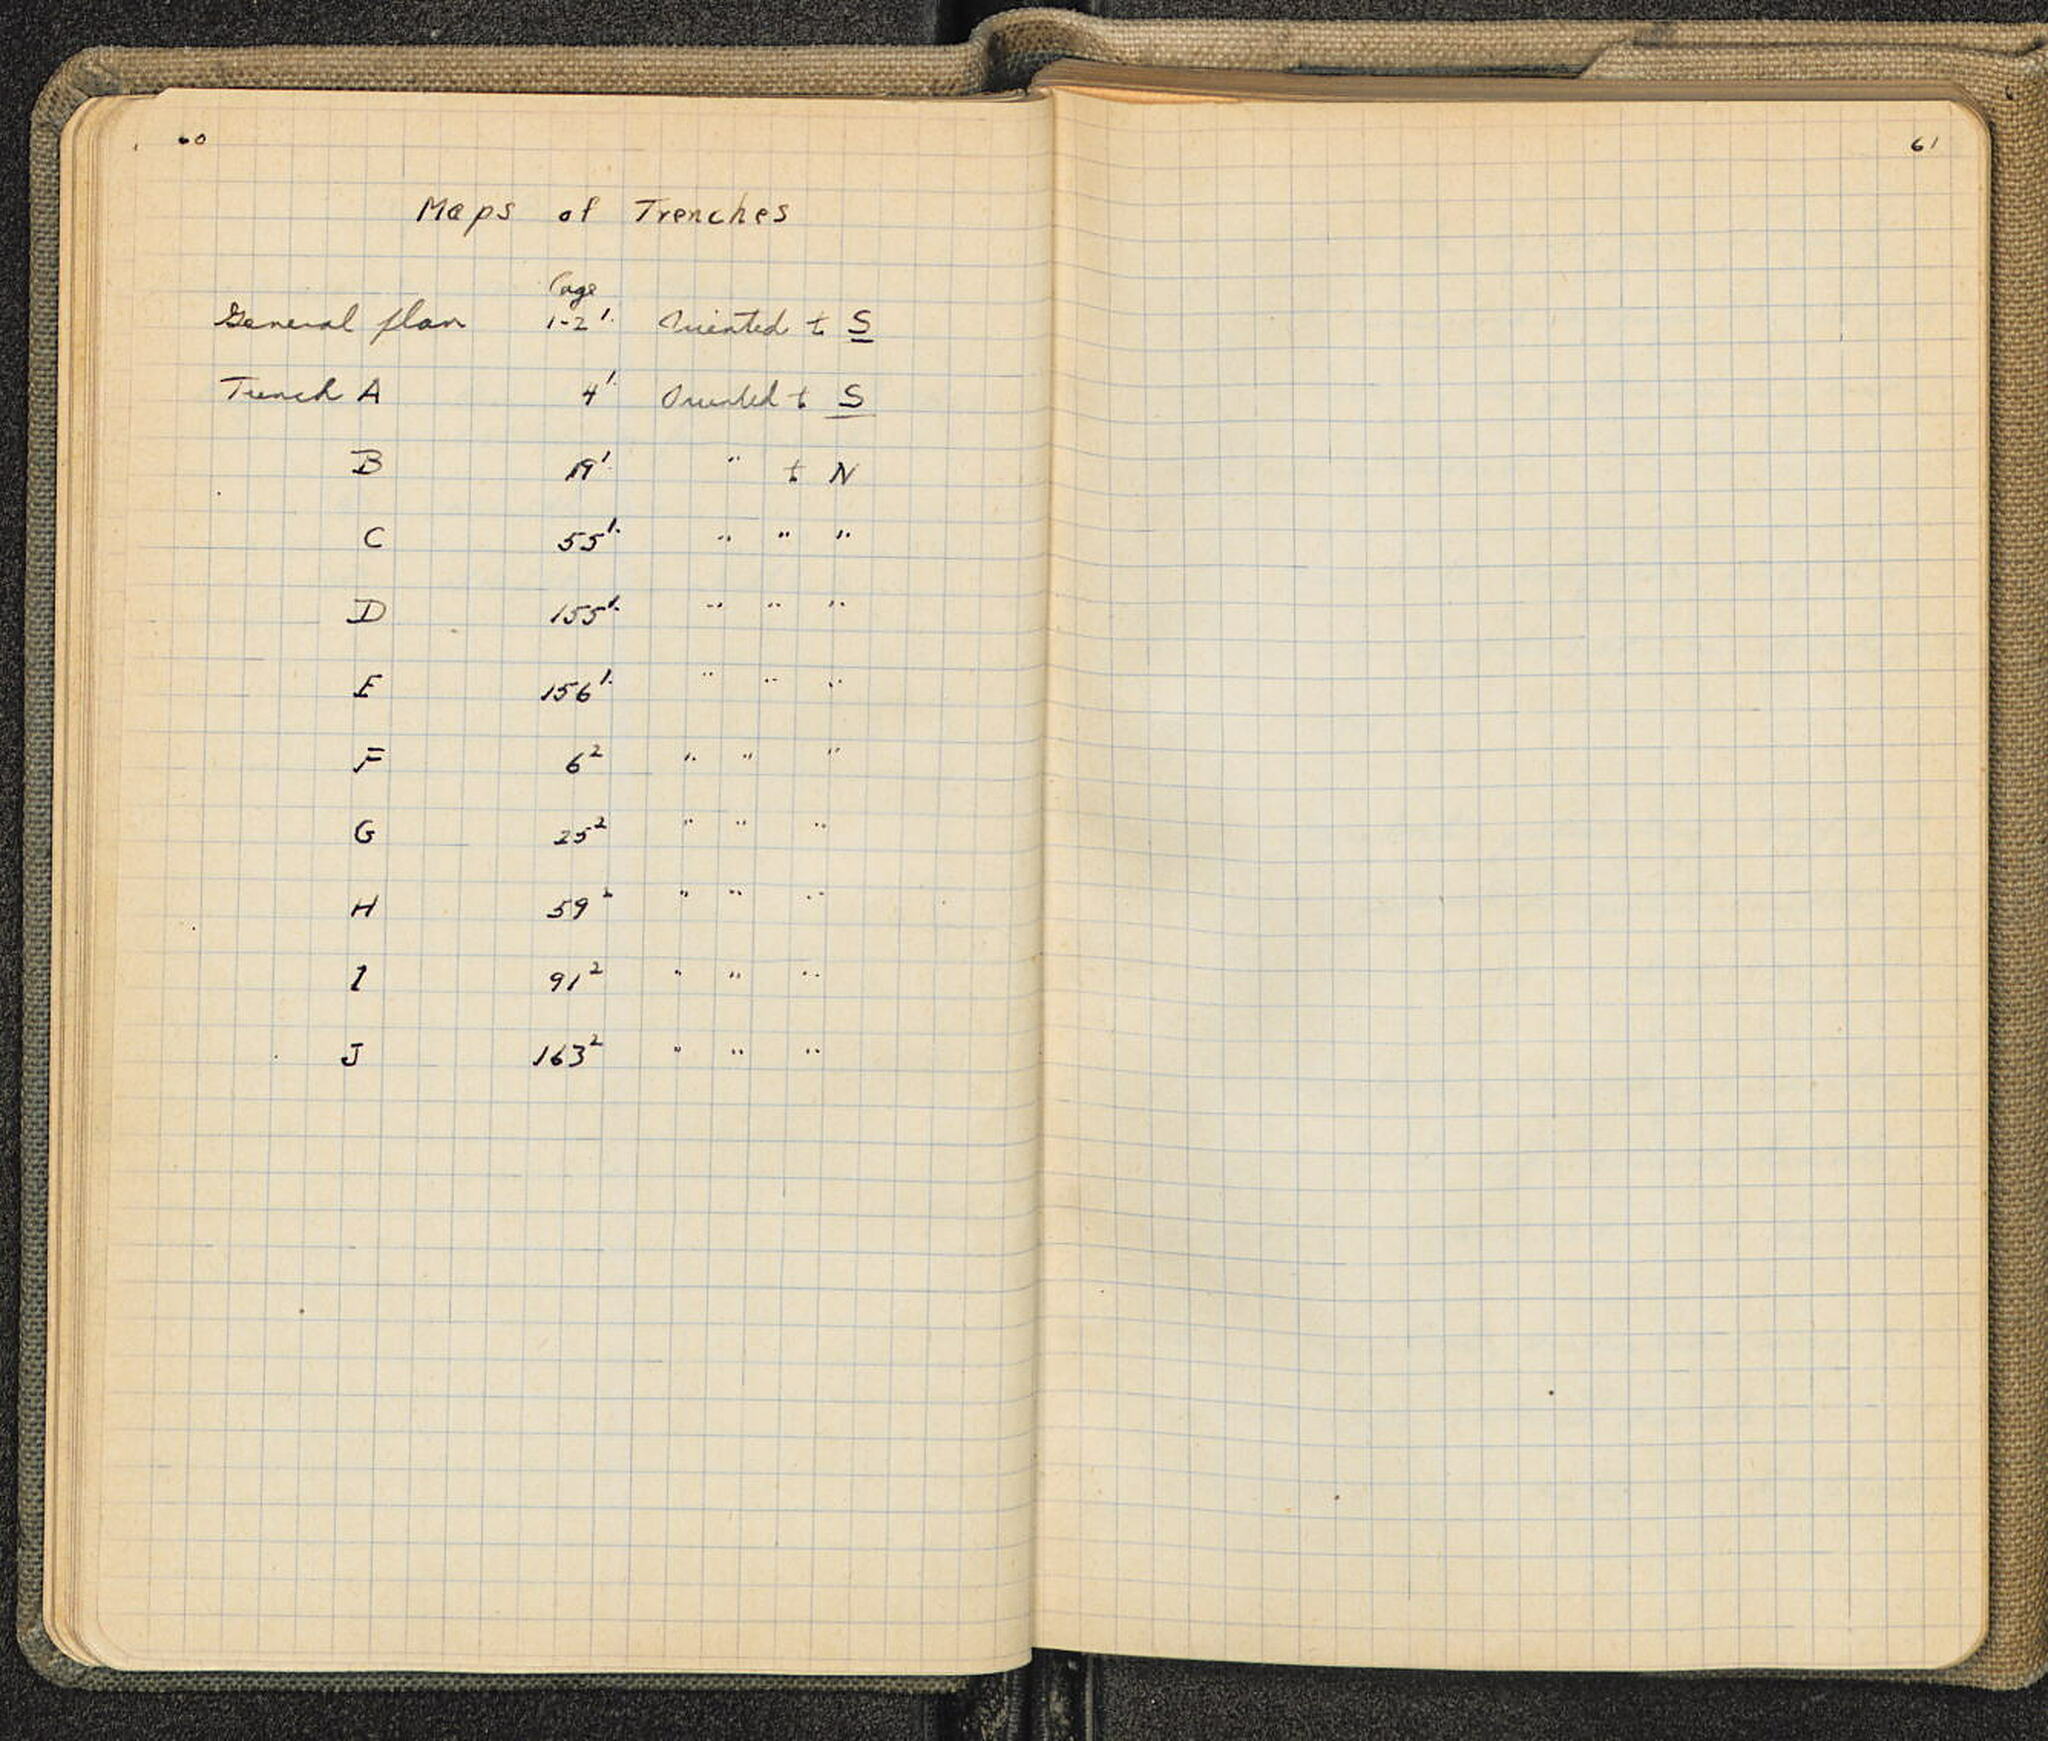 60
Maps of Trenches
Page
General plan 1-2¹· Oriented to S
Trench A 4¹· Oriented to S
B 19¹· " to N
C 55¹· " " "
D 155¹· " " "
E 156¹· " " "
F 6² " " "
G 25² " " "
H 59² " " "
I 91² " " "
J 163² " " "
61